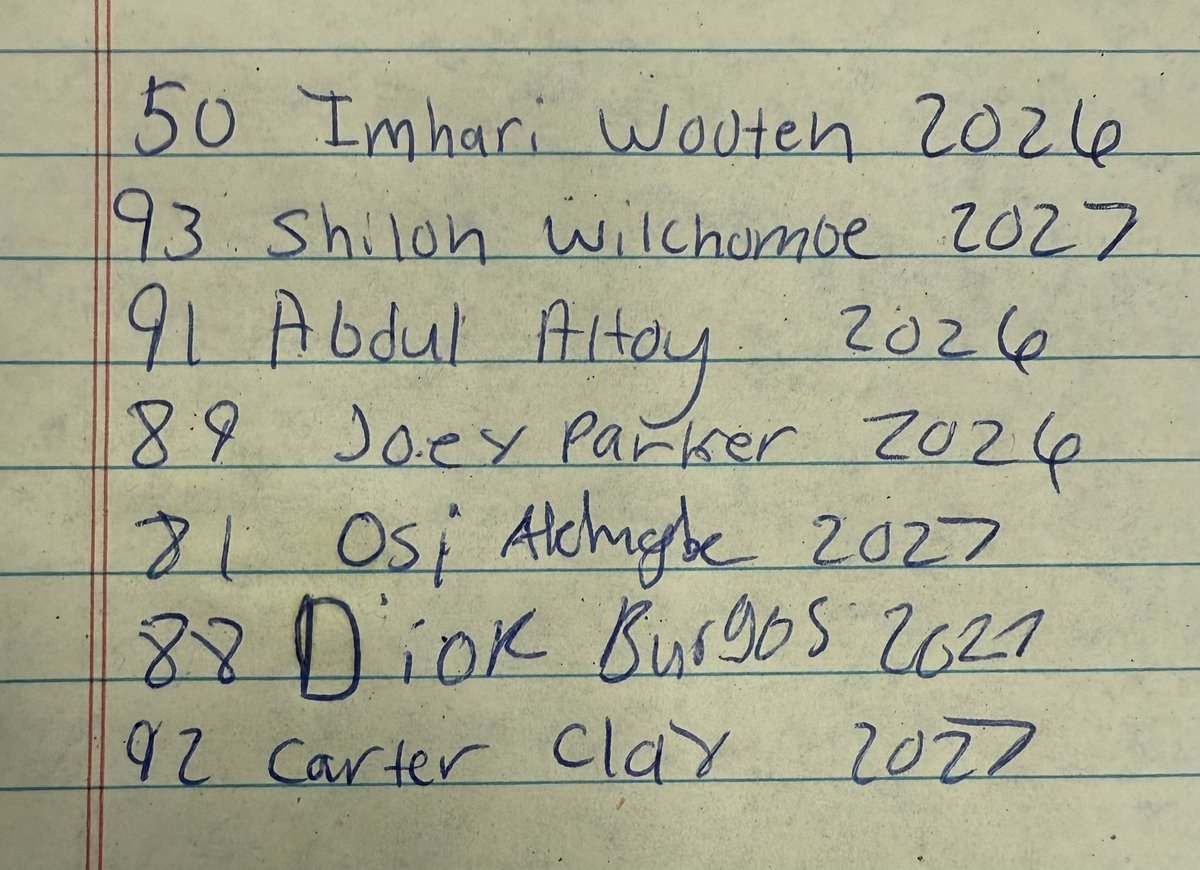 50 Imhari Wooten 2026
93 Shiloh Wilchomoe 2027
91 Abdul Altoy 2026
89 Joey Parker 2026
81 Osi 2027
88 Diok Burgos 2027
92 Carter Clay 2027